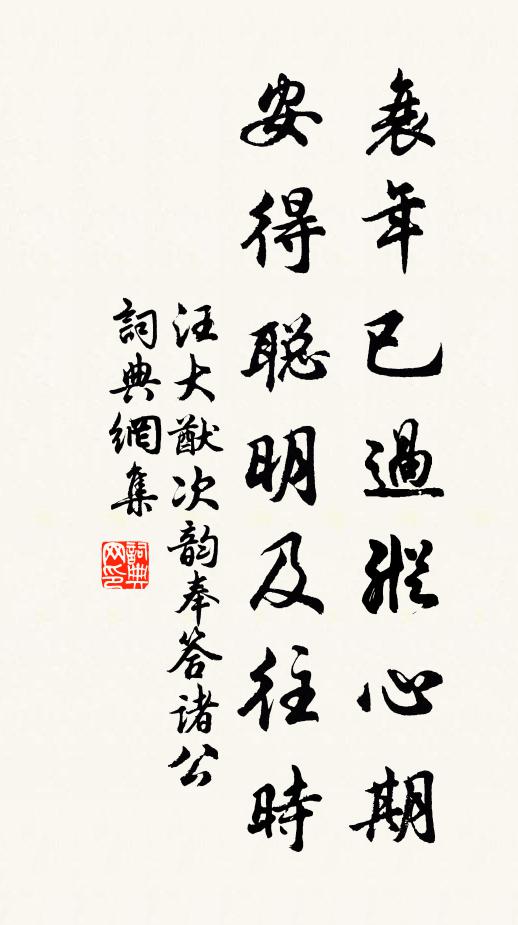 衰年已過縱心期
安得聰明及往時
汪大猷次韵奉答諸公
詞典網集
詞典网印